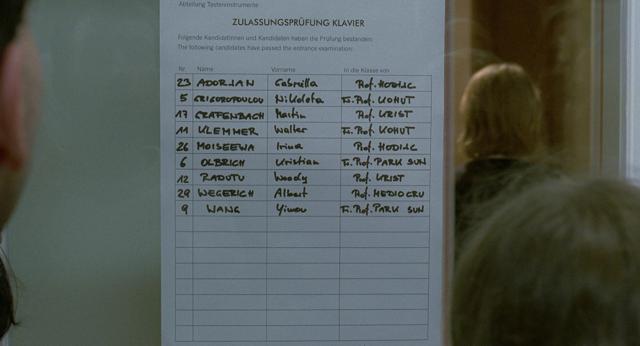 Abteilung Tasteninstrumente
ZULASSUNGSPRÜFUNG KLAVIER
Folgende Kandidatinnen und Kandidaten haben die Prüfung bestanden:
The following candidates have passed the entrance examination:
Nr. Name Vorname In die Klasse von
23 ADORJAN Gabriella Prof. HODLIC
5 GRIGOROPOULOU Nikoleta Fr. Prof. KOHUT
17 GRAFENBACH Martin Prof. URIST
11 KLEMMER Walter Fr. Prof. KOHUT
26 MOISEEWA Irina Prof. HODLIC
6 OLBRICH Kristian Fr. Prof. PARK SUN
12 RADUTU Woody Prof. URIST
29 WEGERICH Albert Prof. MEDIOCRU
9 WANG Yimou Fr. Prof. PARK SUN